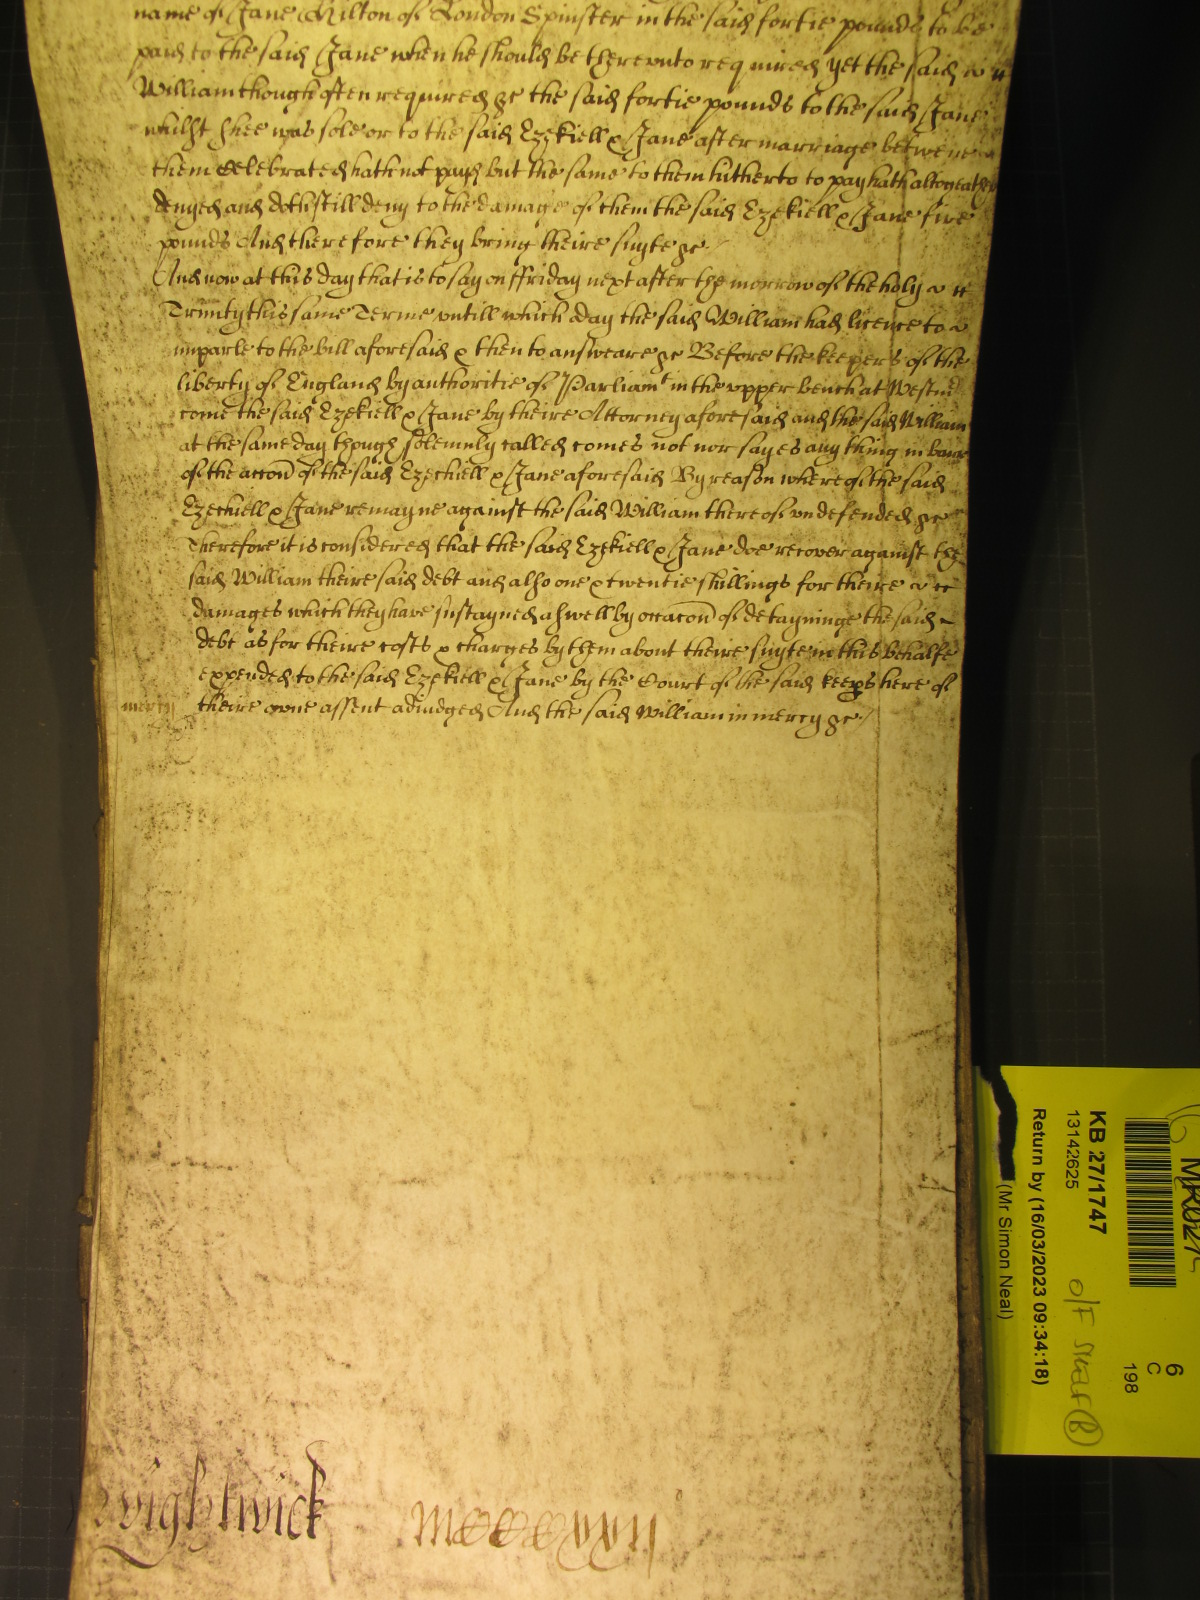 name of Jane Hilton of London Spinster in the said fortie pounds to be
paid to the said Jane when he should be thereunto required yet the said
William though often required &c the said fortie pounds to the said Jane
whilst shee was sole or to the said Ezekiell & Jane after marriage betweene
them Celebrated hath not payd but the same to them hitherto to pay hath altogeather
denyed and doth still deny to the damage of them the said Ezekiell & Jane five
pounds And therefore they bring theire suyte &c
And now at this day that is to say on ffriday next after the morrow of the holy
Trinity this same Terme untill which day the said William had licence to
imparle to the bill aforesaid & then to answeare &c Before the keepers of the
liberty of England by authoritie of Parliamt in the upper bench at Westm
come the said Ezekiell & Jane by theire Attorney aforesaid and the said William
at the same day though solemnly called comes not nor sayes any thing in barr
of the accon of the said Ezechiell & Jane aforesaid By reason whereof the said
Ezechiell & Jane remayne against the said William thereof undefended &c
Therefore it is considered that the said Ezekiell & Jane doe recover against the
said William theire said debt and also one & twentie shillings for theire
damages which they have sustayned aswell by occacon of detayninge the said
debt as for theire costs & charges by them about theire suyte in this behalfe
expended to the said Ezekiell & Jane by the Court of the said keeps here of
mercy theire owne assent adiudged And the said William in mercy &c
Wightwick
KB 27/1747
13142625
Return by (16/03/2023 09:34:18)
(Mr Simon Neal)
6
C
198